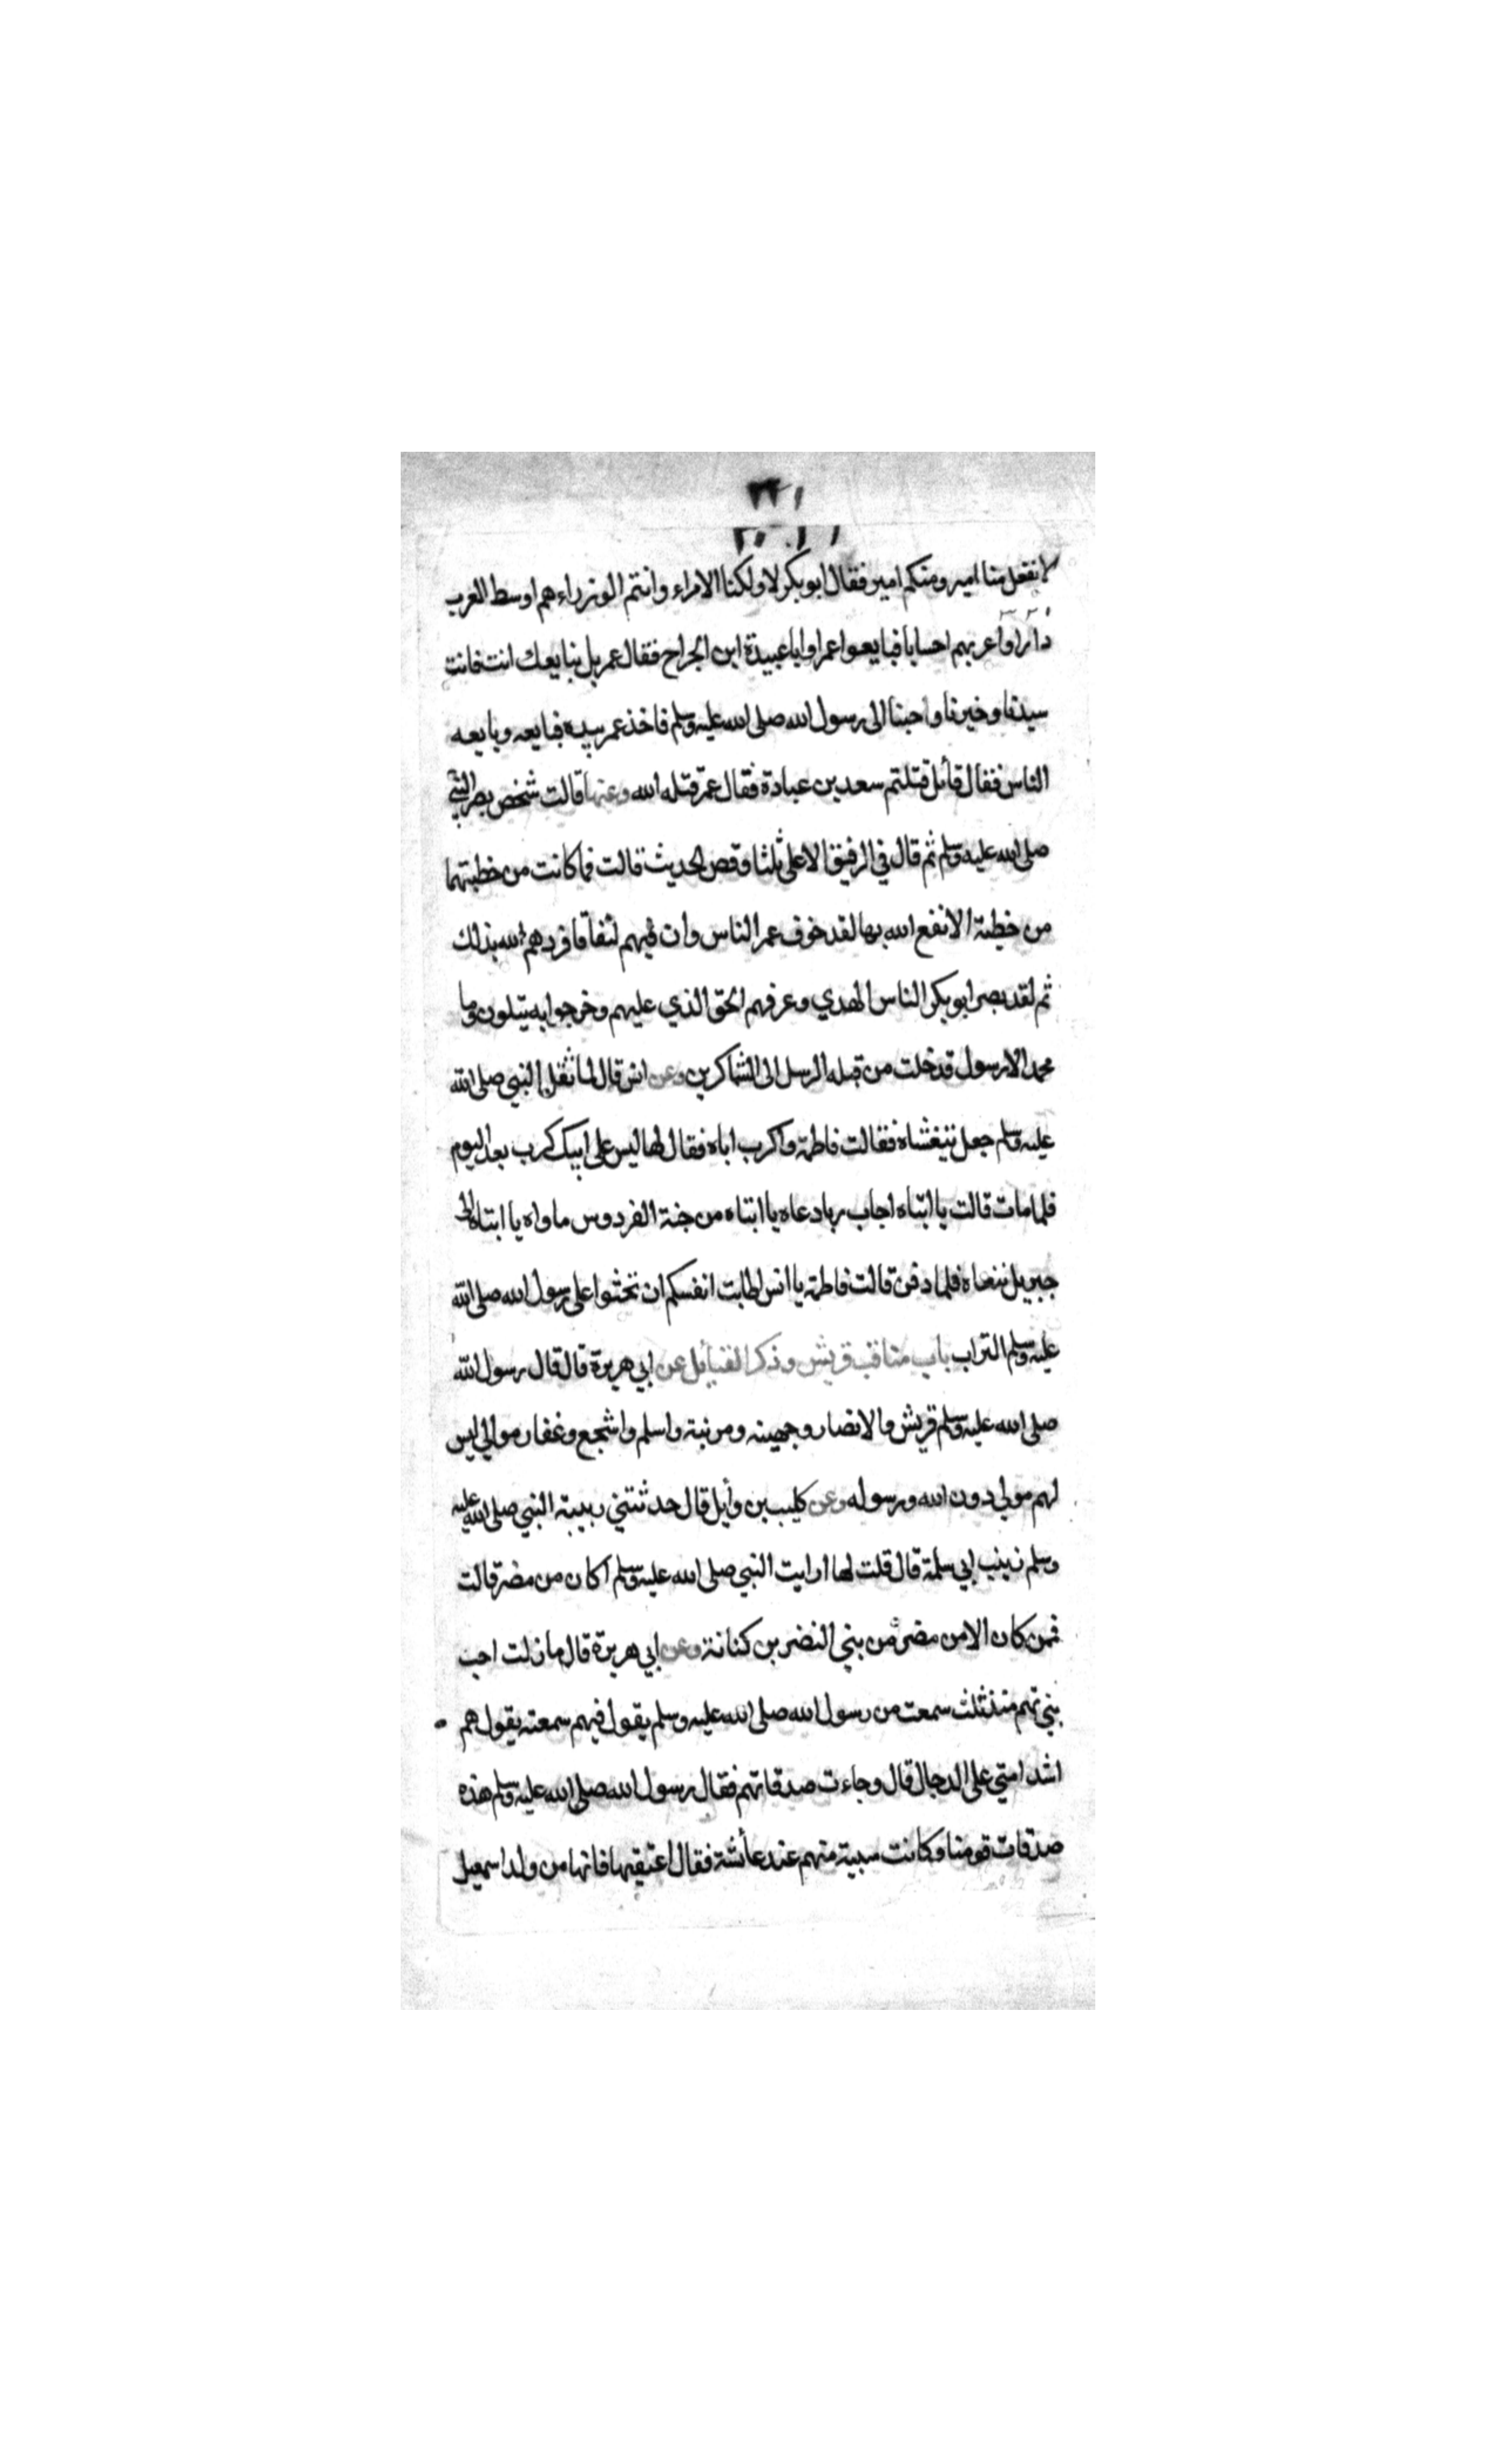 ٢٢١
لا نفعل منا امير ومنكم امير فقال ابو بكر لا ولكنا الامراء وانتم الوزراء هم اوسط العرب
دارا واعربهم احسابا فبايعوا عمر اوابا عبيدة ابن الجراح فقال عمر بل نبايعك انت فانت
سيدنا وخيرنا واحبنا الى رسول الله صلى الله عليه وسلم فاخذ عمر بيده فبايعه وبايعه
الناس فقال قائل قتلتم سعد بن عبادة فقال عمر قتله الله وعنها قالت شخص بصر النبي
صلى الله عليه وسلم ثم قال في الرفيق الاعلى ثلثا وقص الحديث قالت فما كانت من خطبتهما
من خطبة الا نفع الله بها لقد خوف عمر الناس وان فيهم لنفاقا فردهم الله بذلك
ثم لقد بصر ابو بكر الناس الهدي وعرفهم الحق الذي عليهم وخرجوا به يتلون وما
محمد الا رسول قد خلت من قبله الرسل الى الشاكرين وعن انس قال لما ثقل النبي صلى الله
عليه وسلم جعل يتغشاه فقالت فاطمة واكرب اباه فقال لها ليس على ابيك كرب بعد اليوم
فلما مات قالت يا ابتاه اجاب ربا دعاه يا ابتاه من جنة الفردوس ماواه يا ابتاه الى
جبريل ننعاه فلما دفن قالت فاطمة يا انس اطابت انفسكم ان تحثوا على رسول الله صلى الله
عليه وسلم التراب باب مناقب قريش وذكر القبايل عن ابي هريرة قال قال رسول الله
صلى الله عليه وسلم قريش والانصار وجهينة ومزينة واسلم واشجع وغفار موالي ليس
لهم مولى دون الله ورسوله وعن كليب بن وأيل قال حدثتني ربيبة النبي صلى الله عليه
وسلم زينب ابي سلمة قال قلت لها ارايت النبي صلى الله عليه وسلم اكان من مضر قالت
فمن كان الا من مضر من بني النضر بن كنانة وعن ابي هريرة قال ما زلت احب
بني تميم منذ ثلث سمعت من رسول الله صلى الله عليه وسلم يقول فيهم سمعته يقول هم
اشد امتي على الدجال قال وجاءت صدقاتهم فقال رسول الله صلى الله عليه وسلم هذه
صدقات قومنا وكانت سبية منهم عند عائشة فقال اعتقيها فانها من ولد اسمعيل